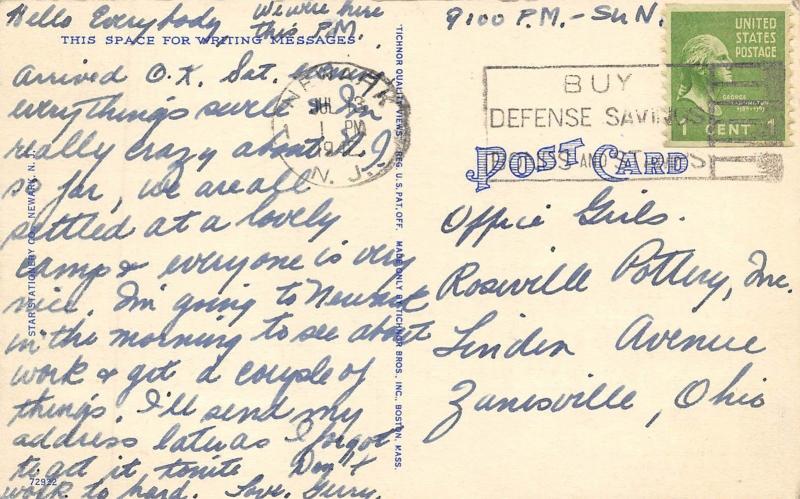 Hello Everybody We were here
this P.M.
THIS SPACE FOR WRITING MESSAGES
Arrived O.K. Sat.
everythings swell I'm
really crazy about N.J.
so far, we are all
settled at a lovely
camp & everyone is very
nice. I'm going to Newark
in the morning to see about
work & get a couple of
things. I'll send my
address later as I forgot
to get it tonite Don't
work to hard. Love, Gerry.
72932
STAR STATIONERY CO., NEWARK, N. J.
"TICHNOR QUALITY VIEWS" REG. U. S. PAT. OFF. MADE ONLY BY TICHNOR BROS. INC., BOSTON, MASS.
9:00 P.M. - SUN.
NEWARK
JUL 13
1 PM
N. J.
BUY
DEFENSE SAVINGS
BONDS AND STAMPS
UNITED
STATES
POSTAGE
GEORGE
WASHINGTON
1789-1797
1 CENT 1
POST CARD
Office Girls.
Roseville Pottery, Inc.
Linden Avenue
Zanesville, Ohio